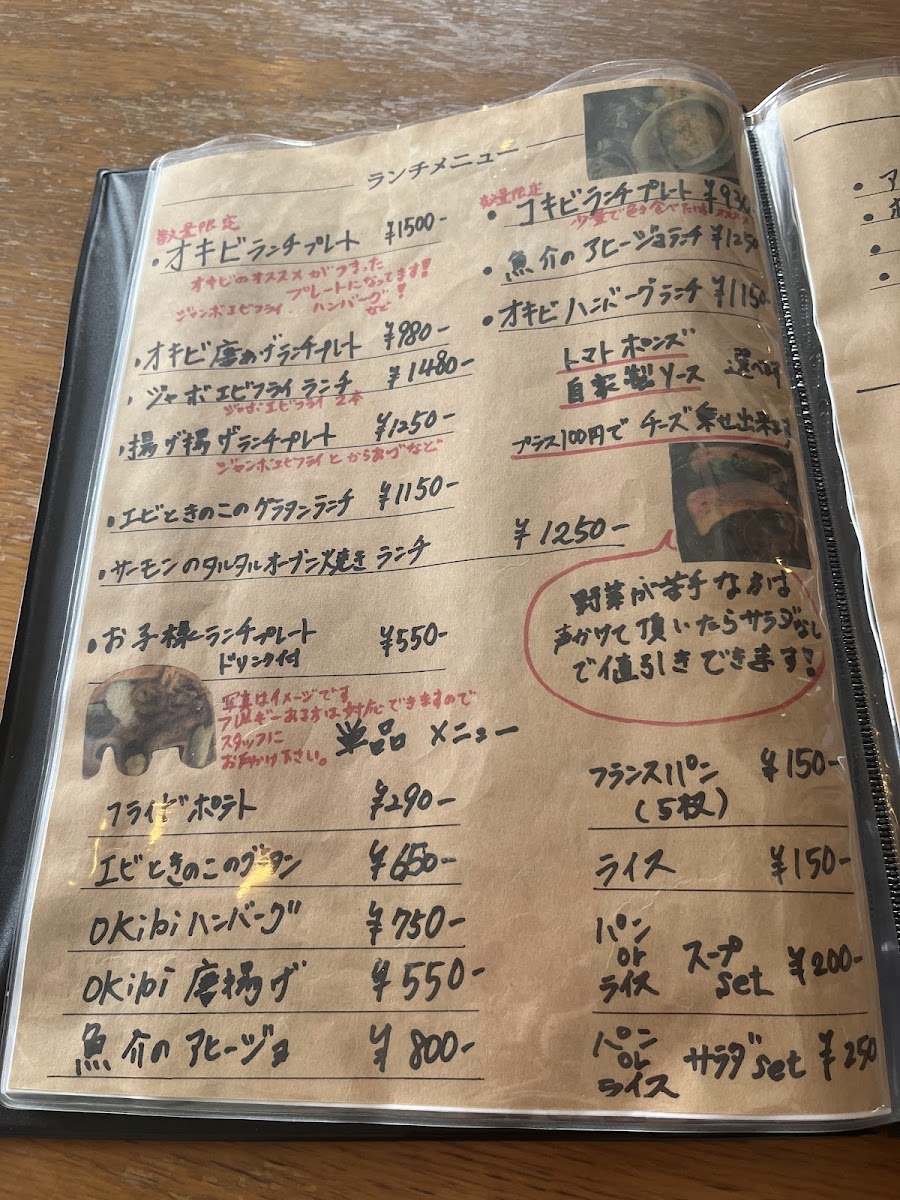 ランチメニュー
数量限定
・オキビランチプレート ¥1500-
オキビのオススメがつまった
プレートになってます!
ジャンボエビフライ ハンバーグ など!
・オキビ唐あげランチプレート ¥980-
・ジャンボエビフライランチ ¥1480-
ジャンボエビフライ 2本
・揚げ揚げランチプレート ¥1250-
ジャンボエビフライとからあげなど
・エビときのこのグラタンランチ ¥1150-
・サーモンのタルタルオーブン焼きランチ ¥1250-
・お子様ランチプレート ¥550-
ドリンク付
写真はイメージです
アレルギーある方は対応できますので
スタッフに
お声かけ下さい。
数量限定
・コキビランチプレート ¥930
少量で色々食べたい
・魚介のアヒージョランチ ¥1250
・オキビハンバーグランチ ¥1150-
トマトポンズ
自家製ソース 選べ
プラス100円でチーズ乗せ出来ます
野菜が苦手な方は
声かけて頂いたらサラダなし
で値引きできます!
単品メニュー
フライドポテト ¥290-
エビときのこのグラタン ¥650-
OKibiハンバーグ ¥750-
OKibi唐揚げ ¥550-
魚介のアヒージョ ¥800-
フランスパン ¥150-
(5枚)
ライス ¥150-
パン or ライス スープ set ¥200-
パン or ライス サラダset ¥250